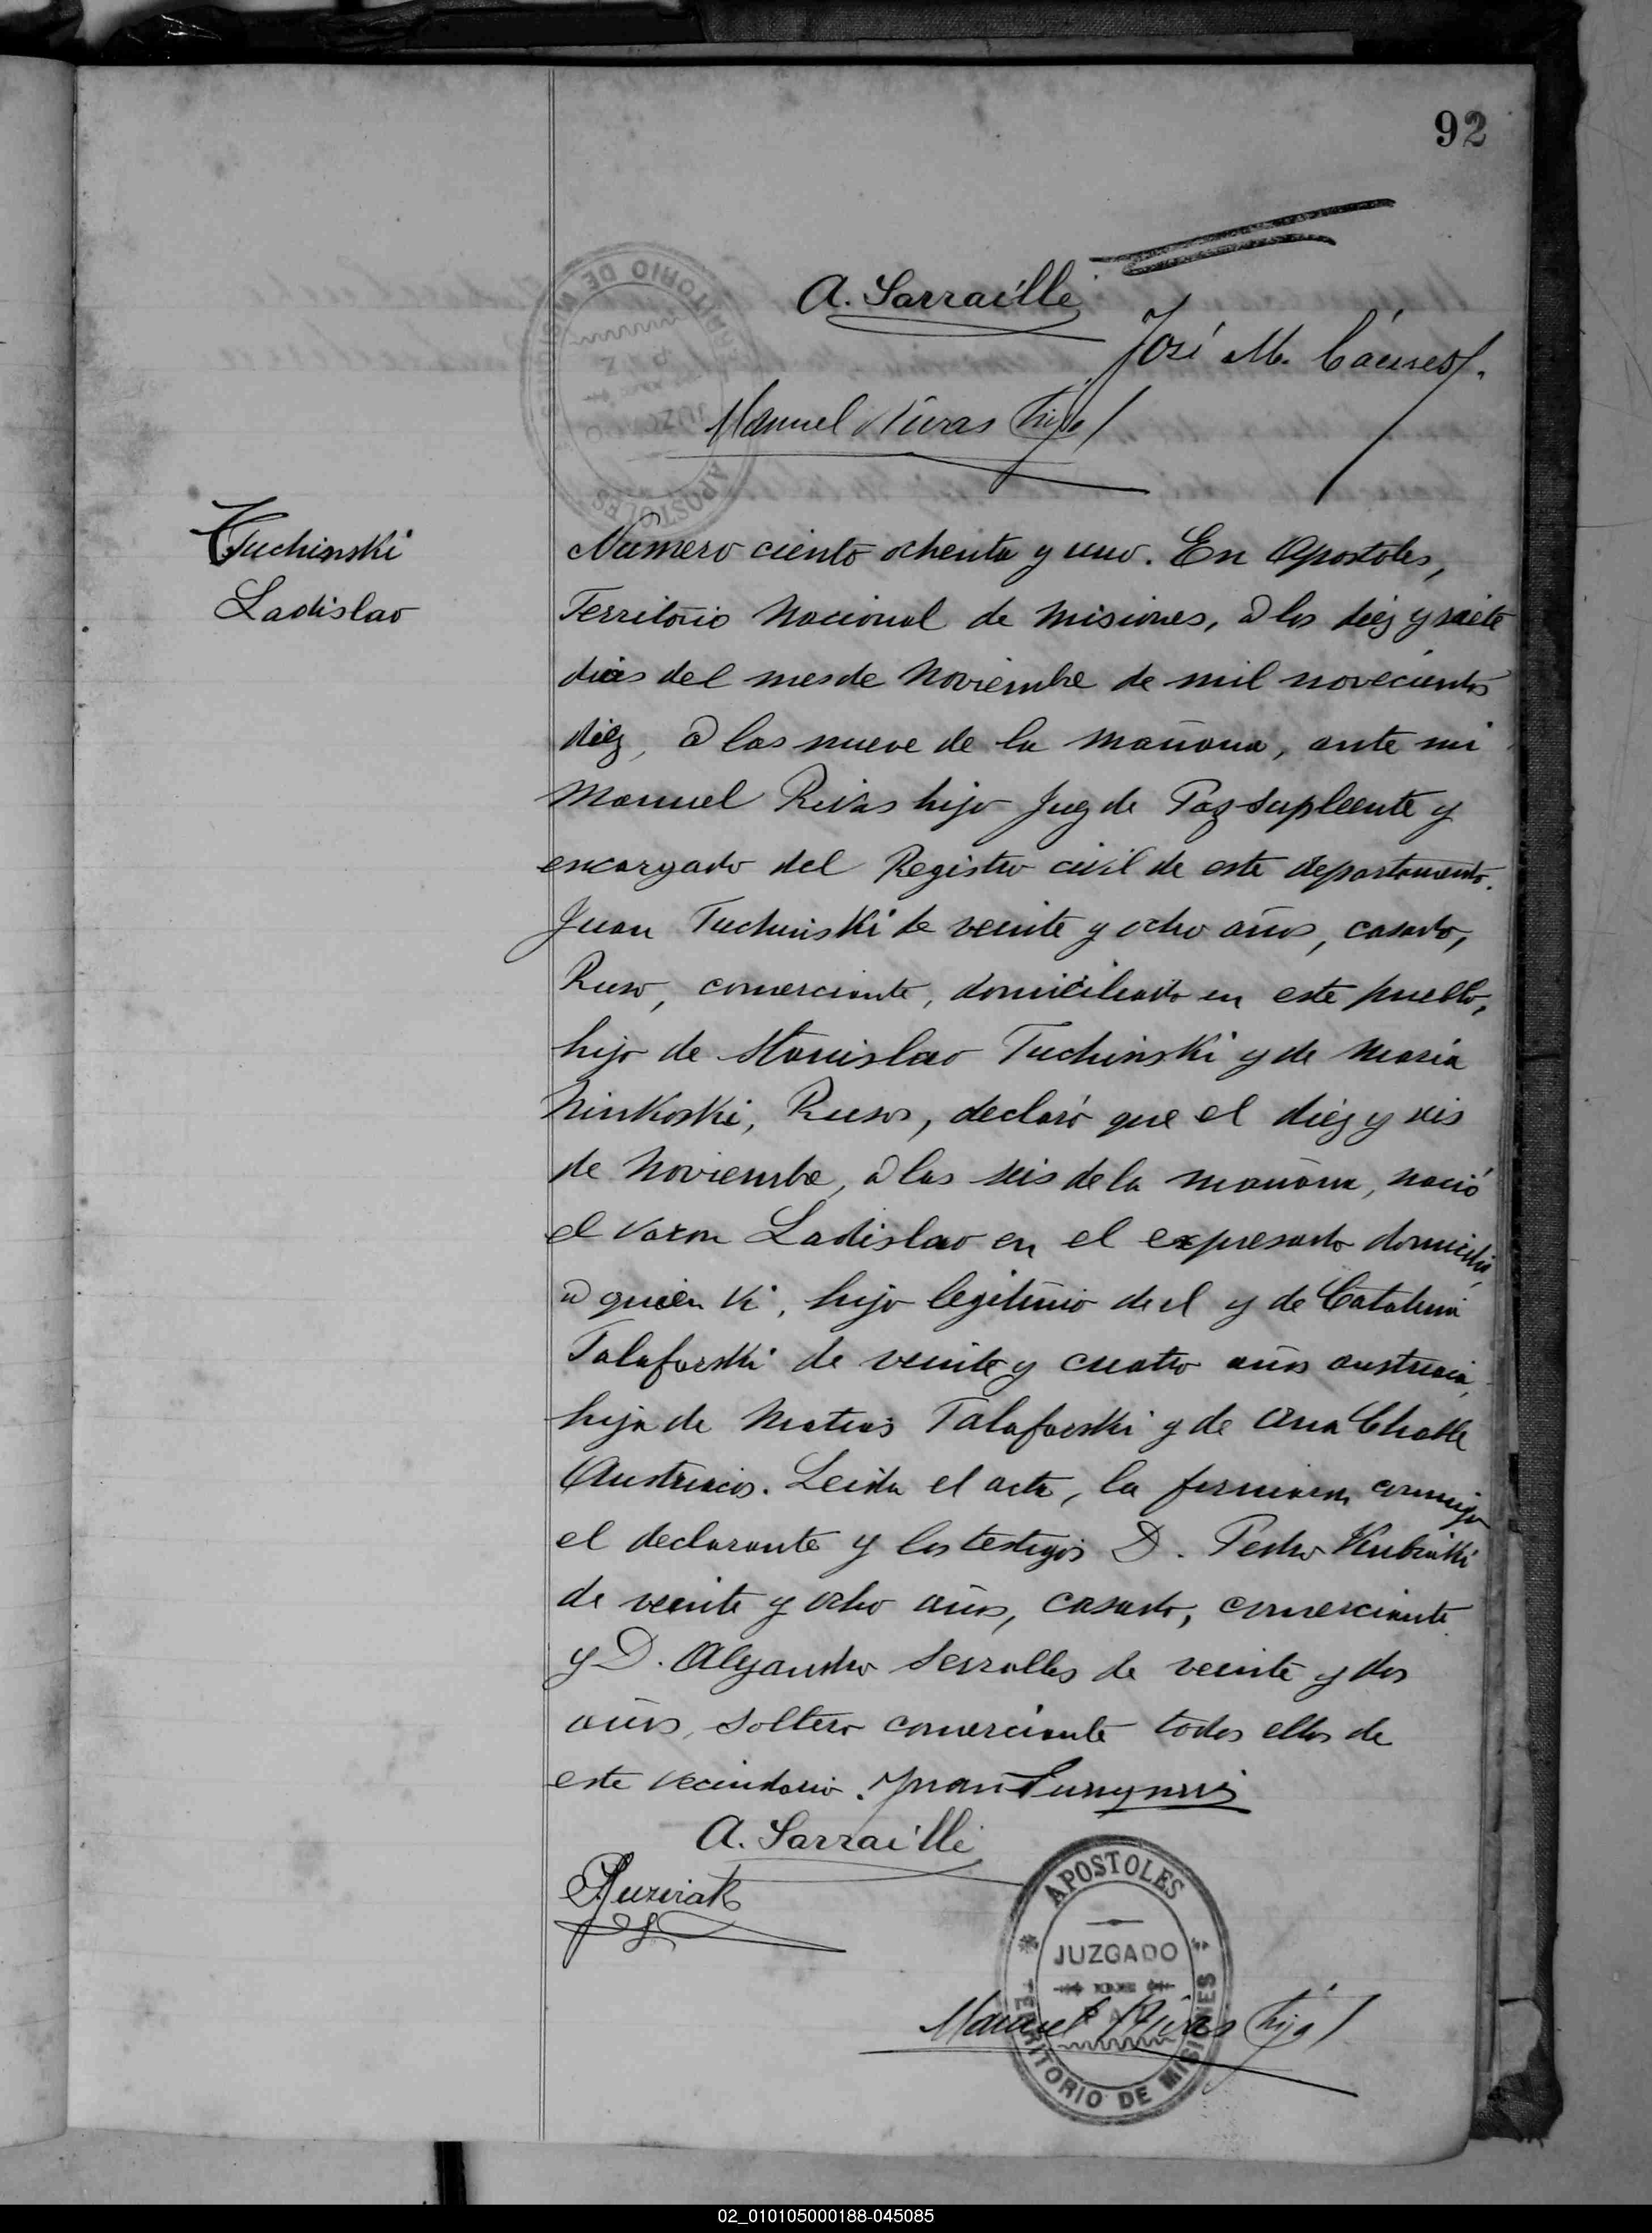 92
A. Sarraille
José M. Cáceres
Manuel Rivas (hijo)
Tuchinski
Ladislao
Numero ciento ochenta y uno. En Apostoles,
Territorio Nacional de Misiones, a los diez y siete
dias del mes de Noviembre de mil novecientos
diez, a las nueve de la mañana, ante mi
Manuel Rivas hijo Juez de Paz Suplente y
encargado del Registro civil de este departamento.
Juan Tuchinski de veinte y ocho años, casado,
Ruso, comerciante, domiciliado en este pueblo,
hijo de Stanislao Tuchinski y de Maria
Ninkoski, Rusos, declaró que el diez y seis
de Noviembre, a las seis de la mañana, nació
el varon Ladislao en el expresado domicilio,
a quien vi, hijo legitimo de el y de Catalina
Talaforski de veinte y cuatro años austriaca,
hija de Matias Talaforski y de Ana
Austriacos. Leida el acta, la firmaron conmigo
el declarante y los testigos D. Pedro
de veinte y ocho años, casado, comerciante
y D. Alejandro Serralles de veinte y dos
años, soltero comerciante todos ellos de
este vecindario. Juan
A. Sarraille
APOSTOLES
JUZGADO
TERRITORIO DE MISIONES
Manuel Rivas (hijo)
02_010105000188-045085